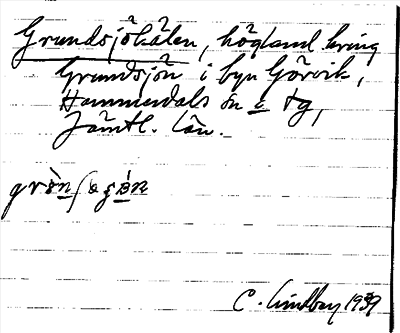 Grundsjökälen, högland kring
Grundsjön i byn Görvik,
Hammerdals sn o tg,
Jämtl. län.
C. Lindberg 1939